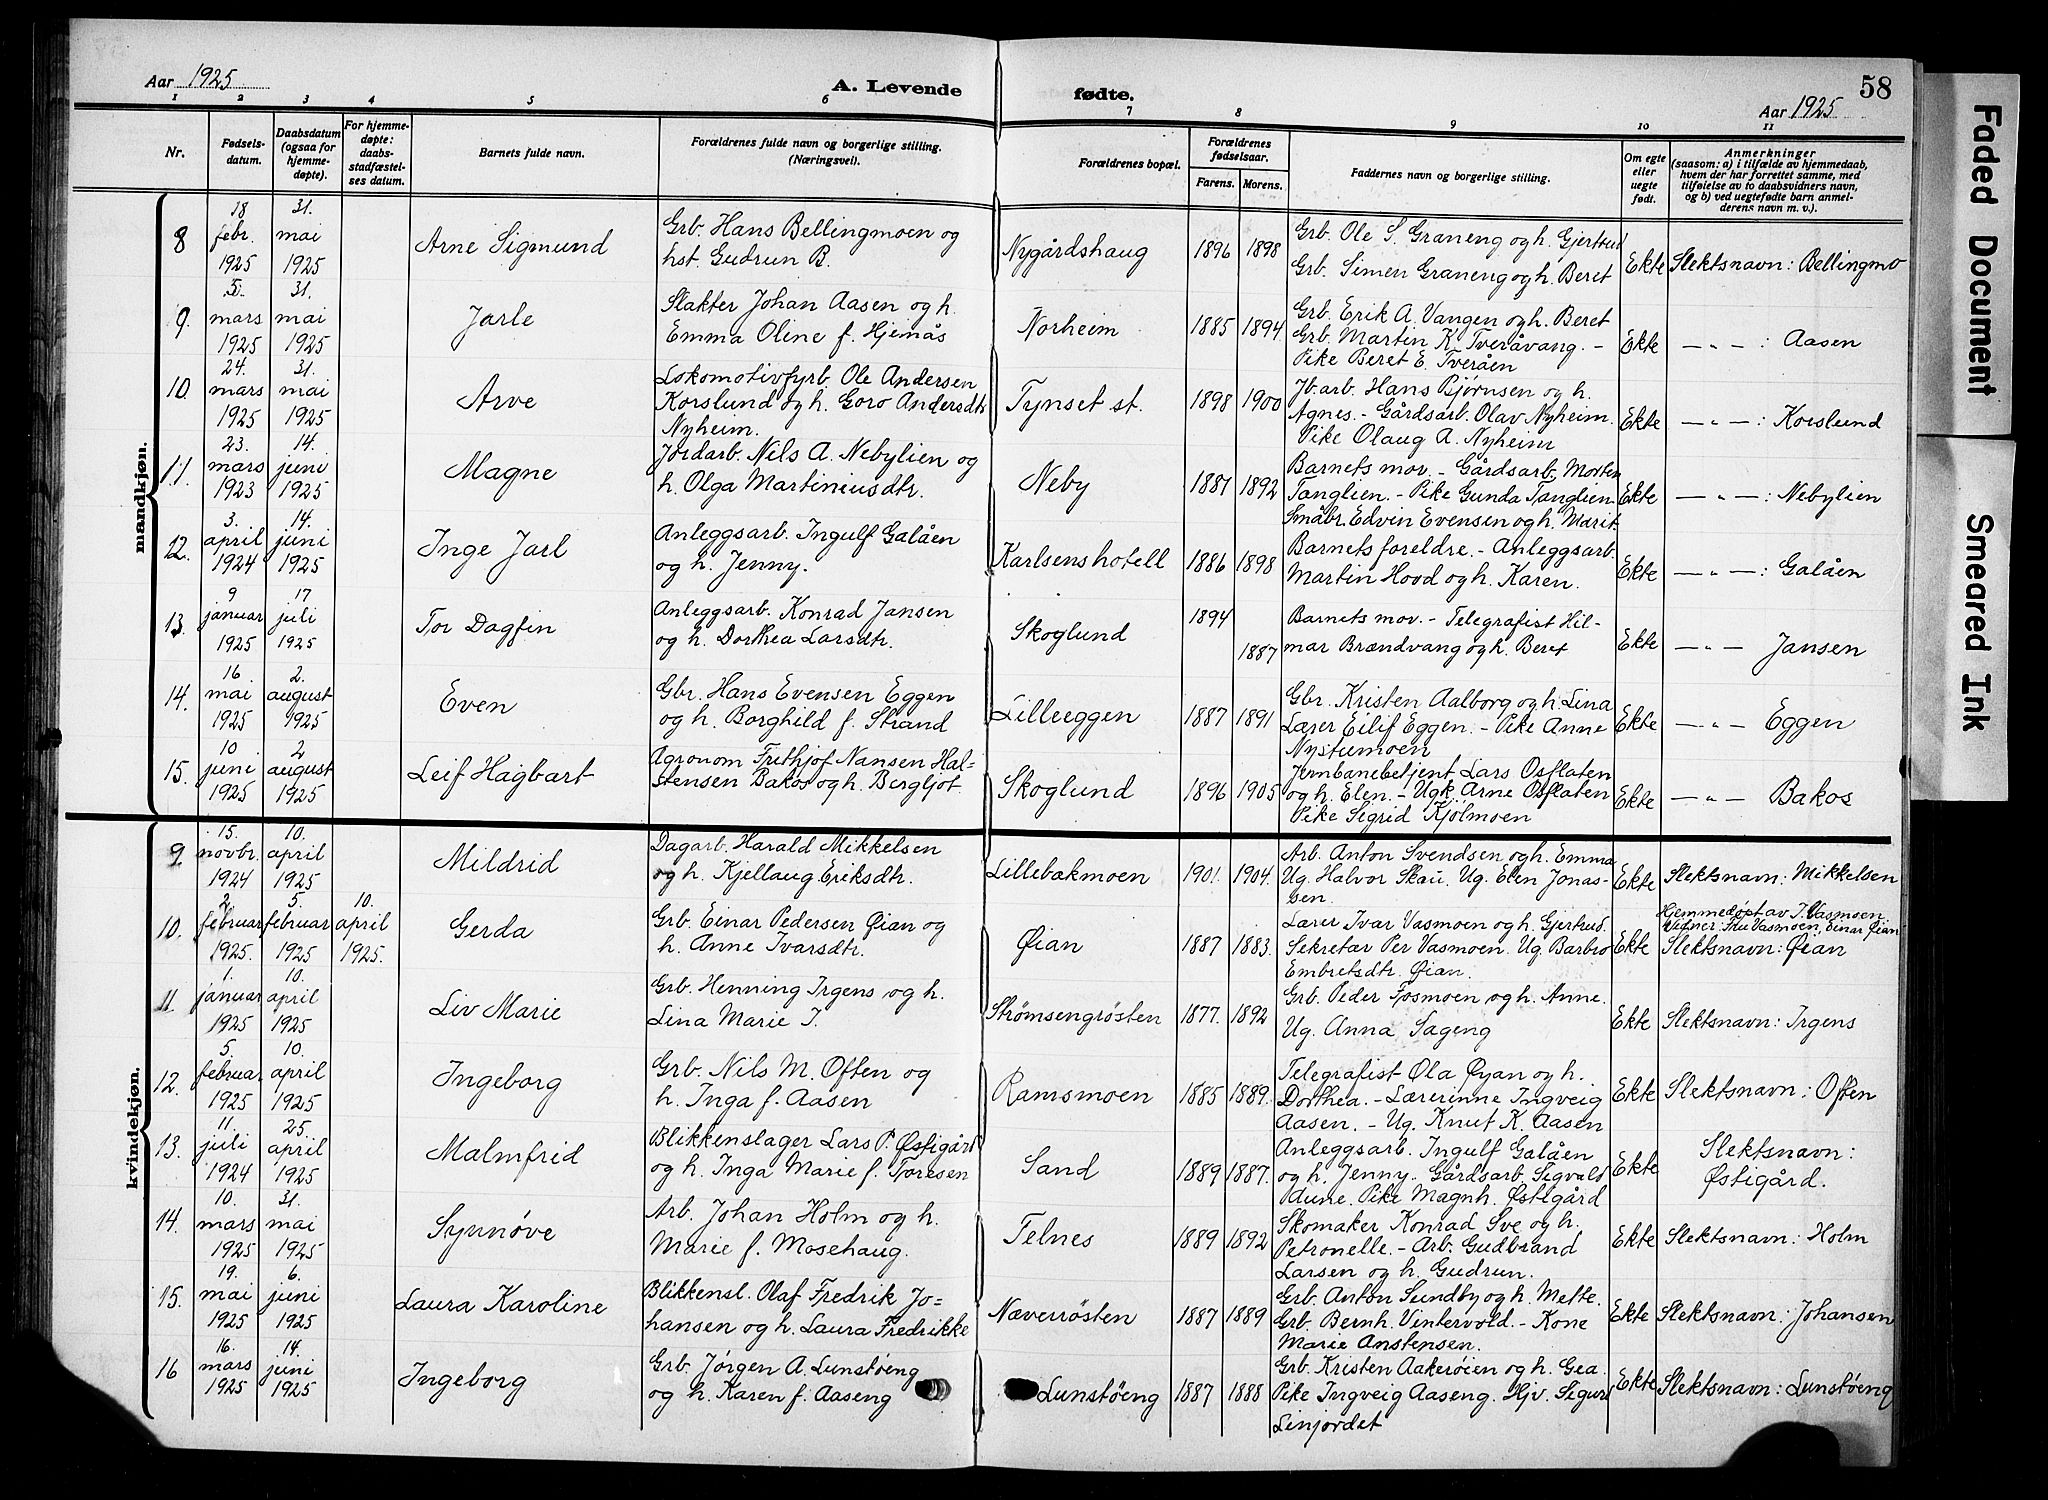 Aar 1925
A. Levende
fødte.
Aar 1925
58
1 2 3 4 5 6 7 8 9 10 11
Nr.
Fødsels-
datum.
Daabsdatum
(ogsaa for
hjemme-
døpte).
For hjemme-
døpte:
daabs-
stadfæstel-
ses datum.
Barnets fulde navn.
Forældrenes fulde navn og borgerlige stilling.
(Næringsvei).
Forældrenes bopæl.
Forældrenes
fødselsaar.
Farens. Morens.
Faddernes navn og borgerlige stilling.
Om egte
eller
uegte
født.
Anmerkninger
(saasom: a) i tilfælde av hjemmedaab,
hvem der har forrettet samme, med
tilføielse av to daabsvidners navn,
og b) ved uegtefødte barn anmel-
derens navn m. v.).
mandkjøn.
8
18
febr.
1925
31.
mai
1925
Arne Sigmund
Grb. Hans Bellingmoen og
hst. Gudrun B.
Nygårdshaug
1896 1898
Grb. Ole S. Graneng og h. Gjertrud
Grb. Simen Graneng og h. Beret
Ekte
Slektsnavn: Bellingmo
9.
5.
mars
1925
31.
mai
1925
Jarle
Slakter Johan Aasen og h.
Emma Oline f. Hjemås
Norheim
1885 1894
Grb. Erik A. Vangen og h. Beret
Grb. Martin K. Tveråvang. –
Pike Beret E. Tveråen
Ekte
— " — : Aasen
10.
24.
mars
1925
31.
mai
1925
Arve
Lokomotivfyrb. Ole Andersen
Korslund og h. Goro Andersdtr
Nyheim.
Tynset st.
1898 1900
Jb.arb. Hans Bjørnsen og h.
Agnes. – Gårdsarb. Olav Nyheim.
Pike Olaug A. Nyheim
Ekte
— " — : Korslund
11.
23.
mars
1923
14.
juni
1925
Magne
Jordarb. Nils A. Nebylien og
h. Olga Martiniusdtr.
Neby
1887 1892
Barnets mor. – Gårdsarb. Morten
Tanglien. – Pike Gunda Tanglien
Småbr. Edvin Evensen og h. Marit.
Ekte
— " — : Nebylien
12.
3.
april
1924
14.
juni
1925
Inge Jarl
Anleggsarb. Ingulf Galåen
og h. Jenny.
Karlsenshotell
1886 1898
Barnets foreldre. – Anleggsarb.
Martin Hood og h. Karen.
Ekte
— " — : Galåen
13.
9
januar
1925
17
juli
1925
Tor Dagfin
Anleggsarb. Konrad Jansen
og h. Dorthea Larsdtr.
Skoglund
1894
1887
Barnets mor. – Telegrafist Hil-
mar Brændvang og h. Beret
Ekte
— " — Jansen
14.
16
mai
1925
2.
august
1925
Even
Gbr. Hans Evensen Eggen
og h. Borghild f. Strand
Lilleeggen
1887 1891
Gbr. Kristen Aalborg og h. Lina
Lærer Eilif Eggen. – Pike Anne
Nystumoen
Ekte
— " — Eggen
15.
10
juni
1925
2
august
1925
Leif Hagbart
Agronom Frithjof Nansen Hal-
stensen Bakos og h. Bergljot.
Skoglund
1896 1905
Jernbanebetjent Lars Osflaten
og h. Elen. – Ugk. Arne Osflaten
Pike Sigrid Kjølmoen
Ekte
— " — Bakos
kvindekjøn.
9.
15.
novbr.
1924
10.
april
1925
Mildrid
Dagarb. Harald Mikkelsen
og h. Kjellaug Eriksdtr.
Lillebakmoen
1901. 1904.
Arb. Anton Svendsen og h. Emma
Ug. Halvor Skau. Ug. Elen Jonas-
sen.
Ekte
Slektsnavn: Mikkelsen
10.
2.
februar
1925.
5.
februar
1925
10.
april
1925.
Gerda
Grb. Einar Pedersen Øian og
h. Anne Ivarsdtr.
Øian
1887 1883.
Lærer Ivar Vasmoen og h. Gjertrud.
Sekretær Per Vasmoen. Ug. Barbro
Embretsdtr. Øian.
Ekte
Hjemmedøpt av I. Vasmoen.
Vidner: Fru Vasmoen, Einar Øian
Slektsnavn: Øian
11.
1.
januar
1925
10.
april
1925
Liv Marie
Grb. Henning Irgens og h.
Lina Marie I.
Strømsengrøsten
1877. 1892
Grb. Peder Fosmoen og h. Anne.
Ug. Anna Sageng
Ekte
Slektsnavn: Irgens
12.
5.
februar
1925
10.
april
1925
Ingeborg
Grb. Nils M. Often og
h. Inga f. Aasen
Ramsmoen
1885 1889.
Telegrafist Ola Øyan og h.
Dorthea. – Lærerinne Ingveig
Aasen. – Ug. Knut K. Aasen
Ekte
Slektsnavn: Often
13.
11.
juli
1924
25.
april
1925
Malmfrid
Blikkenslager Lars P. Østigård
og h. Inga Marie f. Toresen
Sand
1889 1887.
Anleggsarb. Ingulf Galåen
og h. Jenny. Gårdsarb. Sigvald
dune. Pike Magnh. Østigård
Ekte
Slektsnavn:
Østigård.
14.
10.
mars
1925
31.
mai
1925
Synnøve
Arb. Johan Holm og h.
Marie f. Mosehaug.
Telnes
1889 1892
Skomaker Konrad Sve og h.
Petronelle. – Arb. Gudbrand
Larsen og h. Gudrun.
Ekte
Slektsnavn: Holm
15.
19.
mai
1925
6.
juni
1925
Laura Karoline
Blikkensl. Olaf Fredrik Jo-
hansen og h. Laura Fredrikke
Næverrøsten
1887 1889
Grb. Anton Sundby og h. Mette.
Grb. Bernh. Vintervold. – Kone
Marie Anstensen.
Ekte
Slektsnavn: Johansen
16
16.
mars
1925
14.
juni
1925
Ingeborg
Grb. Jørgen A. Lunstøeng
og h. Karen f. Aaseng
Lunstøeng
1887 1888
Grb. Kristen Aakerøien og h. Gea.
Pike Ingveig Aaseng. Hjv. Sigurd
Linjordet
Ekte
Slektsnavn: Lunstøeng
Faded Document
Smeared Ink